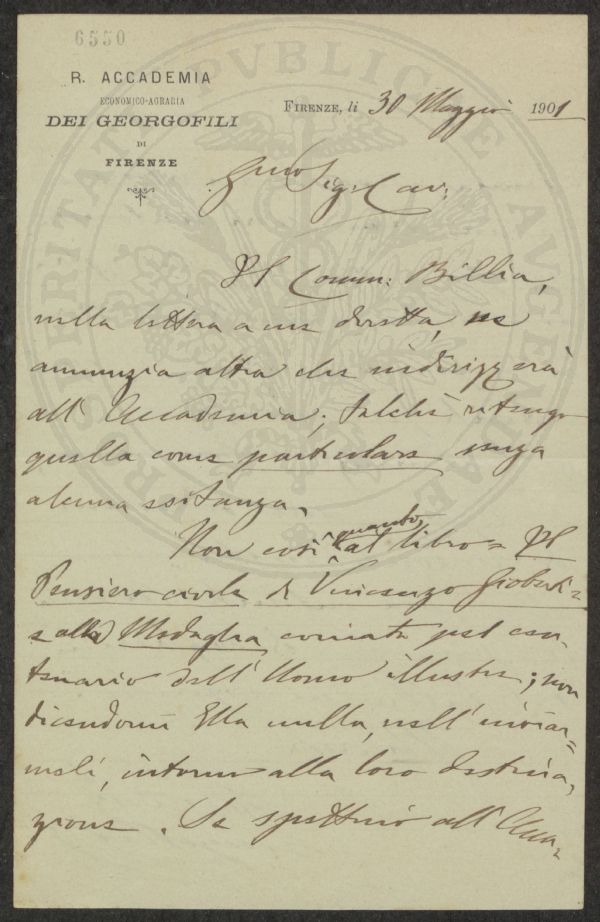 6550
R. ACCADEMIA
ECONOMICO-AGRARIA
DEI GEORGOFILI
DI
FIRENZE
FIRENZE, li 30 Maggio 1901
Sig. Cav:
Il Comm: Billia,
nella lettera a me diretta, ne
annunzia altra che indirizzerà
all' Accademia; talchè ritengo
quella come particolare senza
alcuna esitanza.
Non così quanto al libro = Il
Pensiero civile di Vincenzo Gioberti =
e alla Medaglia coniata pel cen-
tenario dell' Uomo illustre; non
dicendomi Ella nulla, nell' inviar=
meli, intorno alla loro destina,
zione. Se spettino all' Acca=